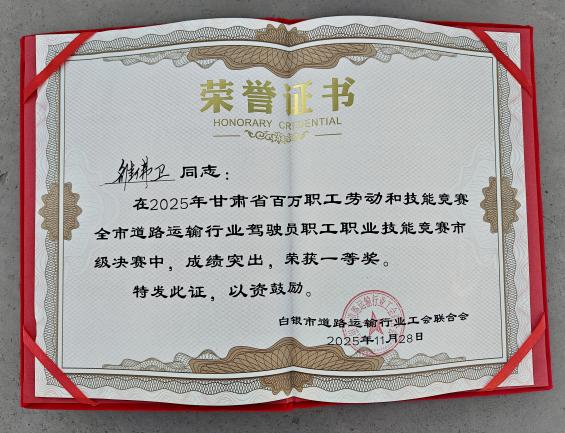 荣誉证书
HONORARY CREDENTIAL
同志：
在2025年甘肃省百万职工劳动和技能竞赛
全市道路运输行业驾驶员职工职业技能竞赛市
级决赛中，成绩突出，荣获一等奖。
特发此证，以资鼓励。
白银市道路运输行业工会联合会
2025年11月28日